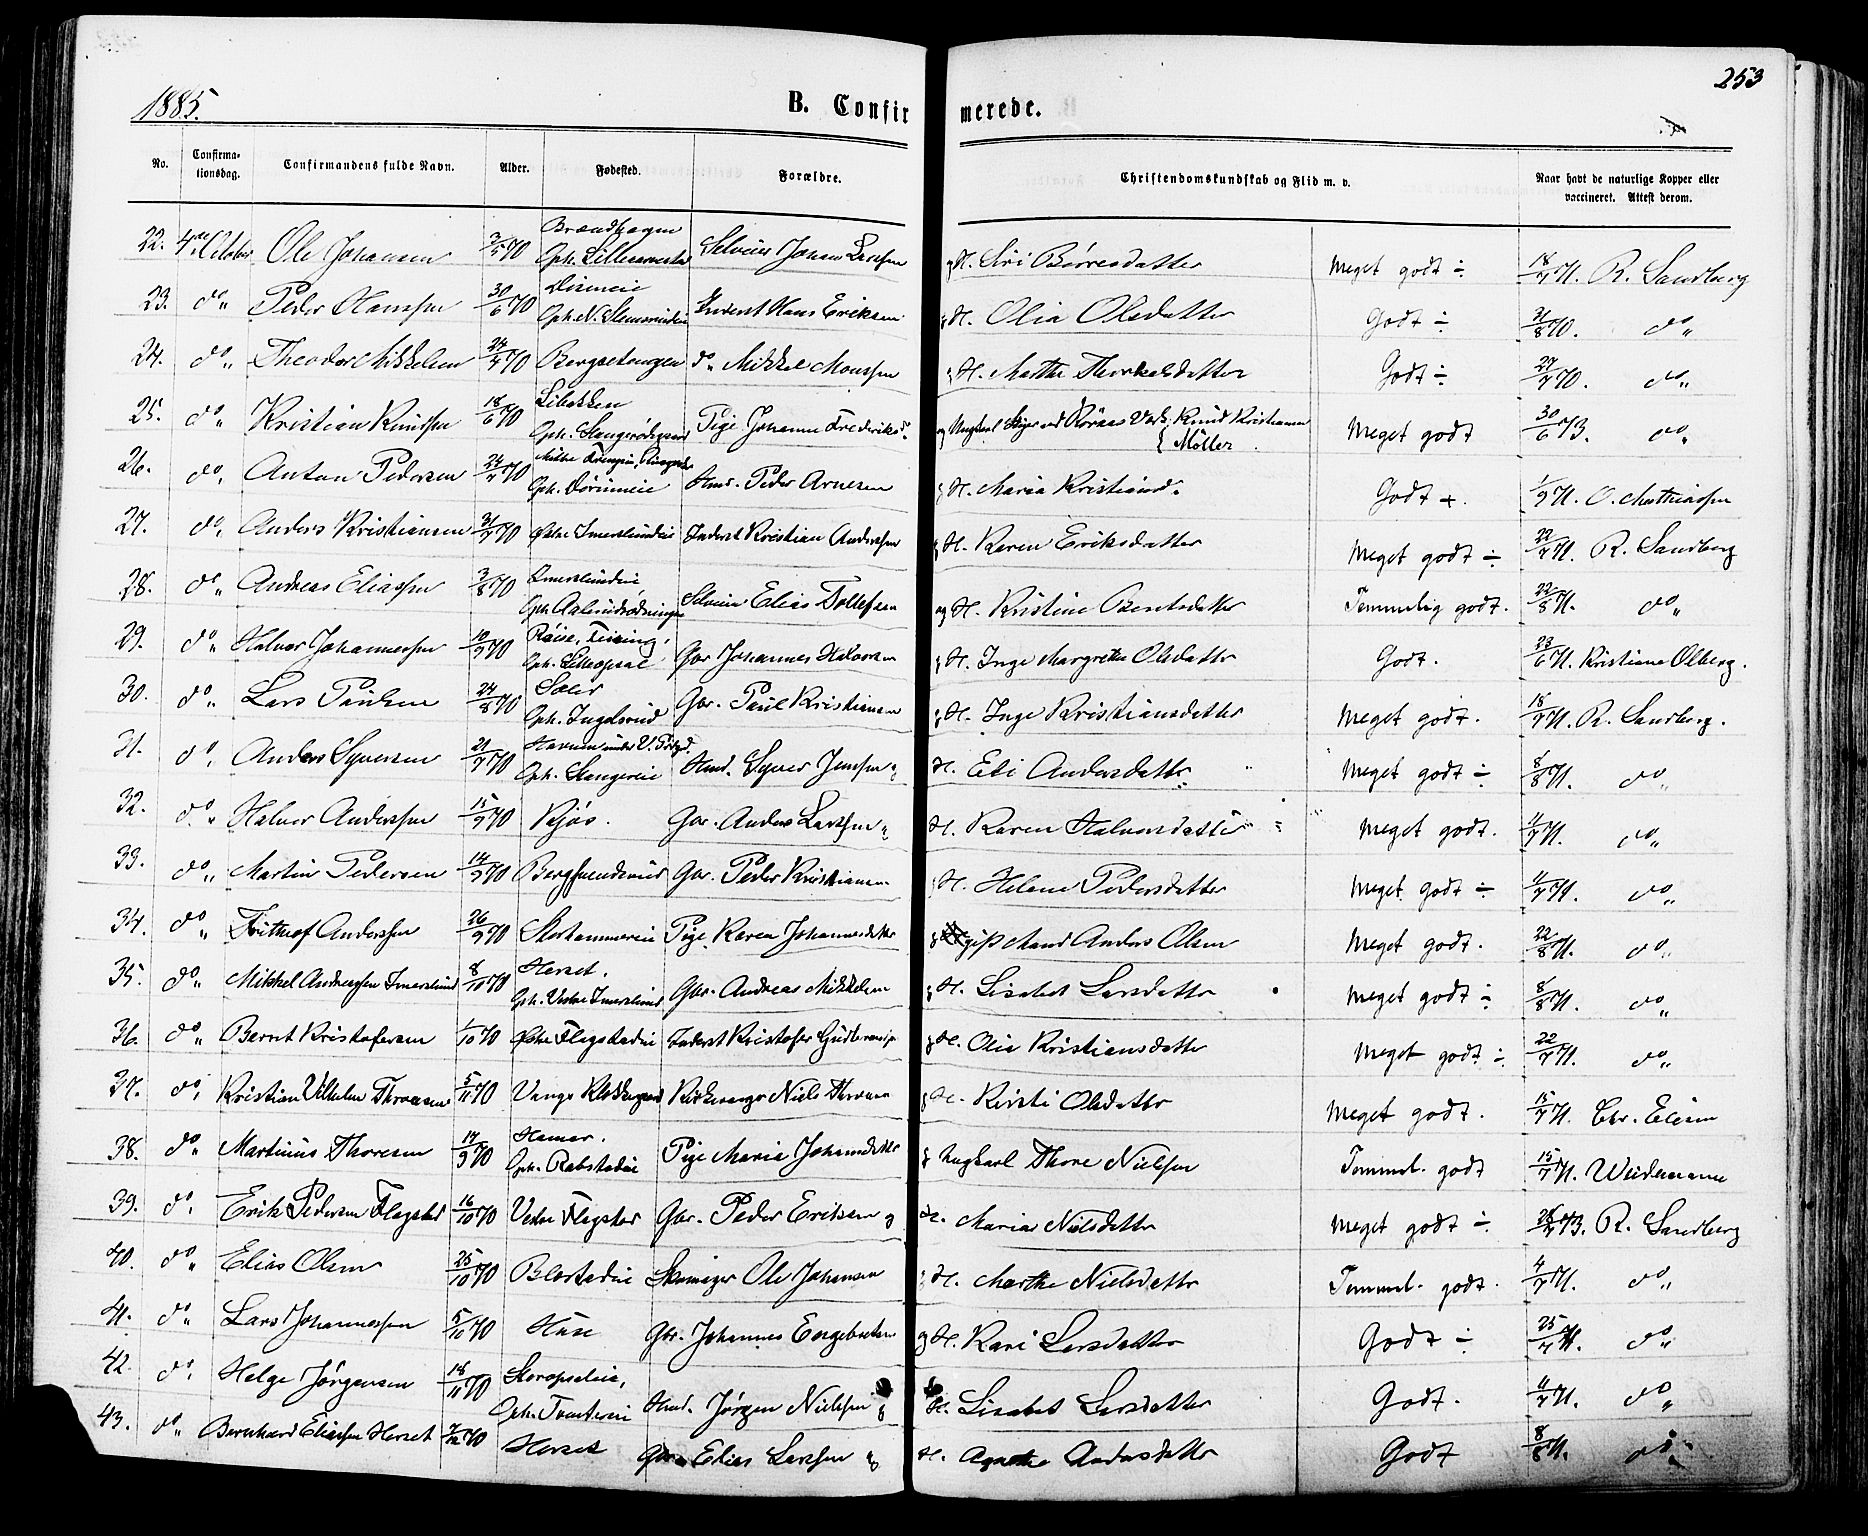 253
1885.
B. Confirmerede.
No. Confirmationsdag. Confirmandens fulde Navn. Alder. Fødested. Forældre. Christendomskundskab og Flid m. v. Naar havt de naturlige Kopper eller vaccineret. Attest derom.
22. 4de October Ole Johansen 2/5 70 Brændhagen Oph. Selveier Johan Larssen og H. Siri Børresdatter Meget godt ÷ 18/7 71. R. Sandberg
23. do „ Peder Hanssen 30/6 70 Inderst Hans Eriksen og H. Olia Olsdatter Godt ÷ 31/8 70. do „
24. do „ Theodor Mikkelsen 24/7 70 Bergsetengen do Mikkel Monssen og H. Marthe Thorkelsdatter Godt ÷ 27/7 70. do „
25. do „ Kristian Knudssen 18/6 70 Libakken Oph. Pige Johanne Frederiksd. og Ungkarl Røraas Værk Knud Kristiansen Møller Meget godt 30/6 73. do „
26. do „ Anton Pedersen 24/7 70 Oph. Hmd. Peder Arnesen og H. Maria Kristiansd. Godt +. 1/9 71. O. Mathiassen
27. do „ Anders Kristiansen 31/7 70 Østre Imerslundeie Inderst Kristian Anderssen og H. Karen Eriksdatter Meget godt ÷ 22/7 71. R. Sandberg
28. do „ Andreas Eliassen 3/8 70 Imerslundeie Oph. Selveier Elias Tollefsen og H. Kristine Berntsdatter Temmelig godt. 22/8 71. do „
29. do „ Halvor Johannessen 10/9 70 Røise, Feiring, Oph. Gbr Johannes Halvorsen og H. Inge Margrethe Olsdattr Godt. 23/6 71. Kristiane Olberg.
30. do „ Lars Paulsen 24/8 70 Sæter Oph. Ingelsrud Gbr. Paul Kristiansen og H. Inge Kristiansdatter Meget godt. 18/7 71. R. Sandberg.
31. do „ Anders Syversen 21/7 70 Oph. Stangereie Hmd. Syver Jenssen og H. Eli Andersdattr Meget godt ÷ 8/8 71. do „
32. do „ Halvor Anderssen 15/9 70 Kjøs. Gbr. Anders Larssen og H. Karen Halvorsdatter Meget godt. 11/7 71. do „
33. do „ Martin Pedersen 14/9 70 Gbr. Peder Kristiansen og H. Helene Pedersdatter Meget godt ÷ 11/7 71. do „
34. do „ Frithjof Anderssen 26/9 70 Storhammereie Pige Karen Johannesdattr og gift Mand Anders Olsen Meget godt. 22/8 71. do „
35. do „ Mikkel Andreassen Imerslund 8/10 70 Herset. Oph. Vestre Imerslund Gbr. Andreas Mikkelsen og H. Lisabet Larsdattr Meget godt ÷ 8/8 71. do „
36. do „ Bernt Kristofersen 1/10 70 Østre Flagstadeie Inderst Kristofer og H. Olia Kristiansdatter Meget godt ÷ 22/7 71. do „
37. do „ Kristian Vilhelm Thoresen 5/11 70 Vangs Klokkergaard Kirkesanger Niels Thoresen og H. Kirsti Olsdattr Meget godt. 15/7 71. Chr.
38. do „ Martinius Thoresen 17/9 70 Hamar. Oph. Rabstadeie Pige Maria Johannesdattr og Ungkarl Thore Nielsen Temmel. godt 15/7 71. Weidemann
39. do „ Erik Pedersen Flagstad 16/10 70 Vestre Flagstad Gbr. Peder Eriksen og H. Maria Nielsdattr Meget godt ÷ 73. R. Sandberg
40. do „ Elias Olsen 25/10 70 Blæstadeie Skomager Ole Johansen og H. Marthe Nielsdattr Temmel. godt. 4/7 71. do „
41. do „ Lars Johannessen 5/10 70 Huse Gbr. Johannes Engebretsen og H. Kari Larsdatter Godt ÷ 25/7 71. do „
42. do „ Helge Jørgensen 18/11 70 Oph. Hmd. Jørgen Nielsen og H. Lisabet Larsdatter Godt. 11/7 71. do „
43. do „ Bernhard Eliassen Herset 7/12 70 Herset Gbr. Elias Larssen og H. Agnethe Andersdattr Godt 8/8 71. do „